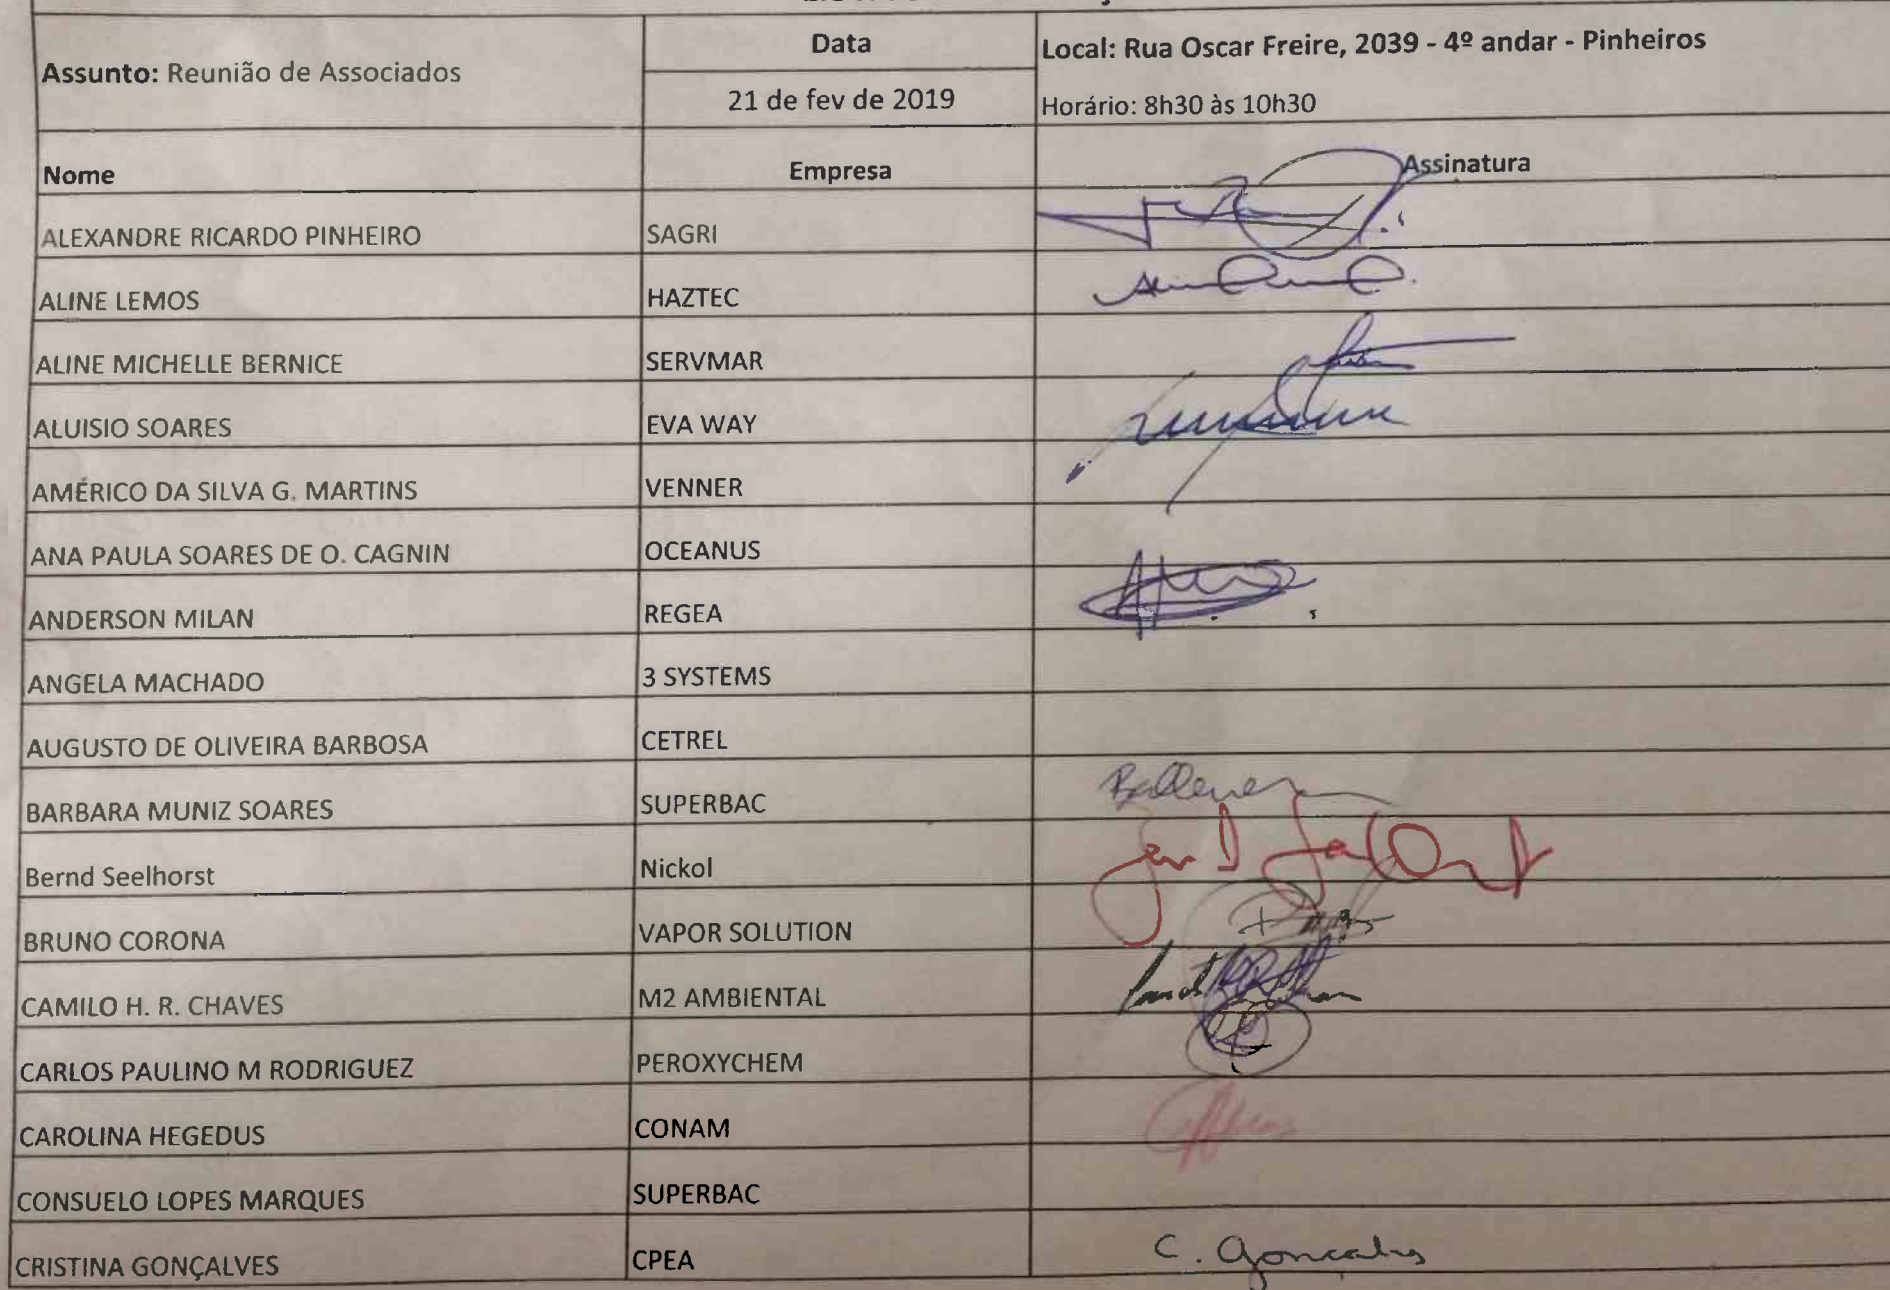 Assunto: Reunião de Associados
Data
21 de fev de 2019
Local: Rua Oscar Freire, 2039 - 4º andar - Pinheiros
Horário: 8h30 às 10h30
Nome Empresa Assinatura
ALEXANDRE RICARDO PINHEIRO SAGRI
ALINE LEMOS HAZTEC
ALINE MICHELLE BERNICE SERVMAR
ALUISIO SOARES EVA WAY
AMÉRICO DA SILVA G. MARTINS VENNER
ANA PAULA SOARES DE O. CAGNIN OCEANUS
ANDERSON MILAN REGEA
ANGELA MACHADO 3 SYSTEMS
AUGUSTO DE OLIVEIRA BARBOSA CETREL
BARBARA MUNIZ SOARES SUPERBAC
Bernd Seelhorst Nickol
BRUNO CORONA VAPOR SOLUTION
CAMILO H. R. CHAVES M2 AMBIENTAL
CARLOS PAULINO M RODRIGUEZ PEROXYCHEM
CAROLINA HEGEDUS CONAM
CONSUELO LOPES MARQUES SUPERBAC
CRISTINA GONÇALVES CPEA C. Goncalves